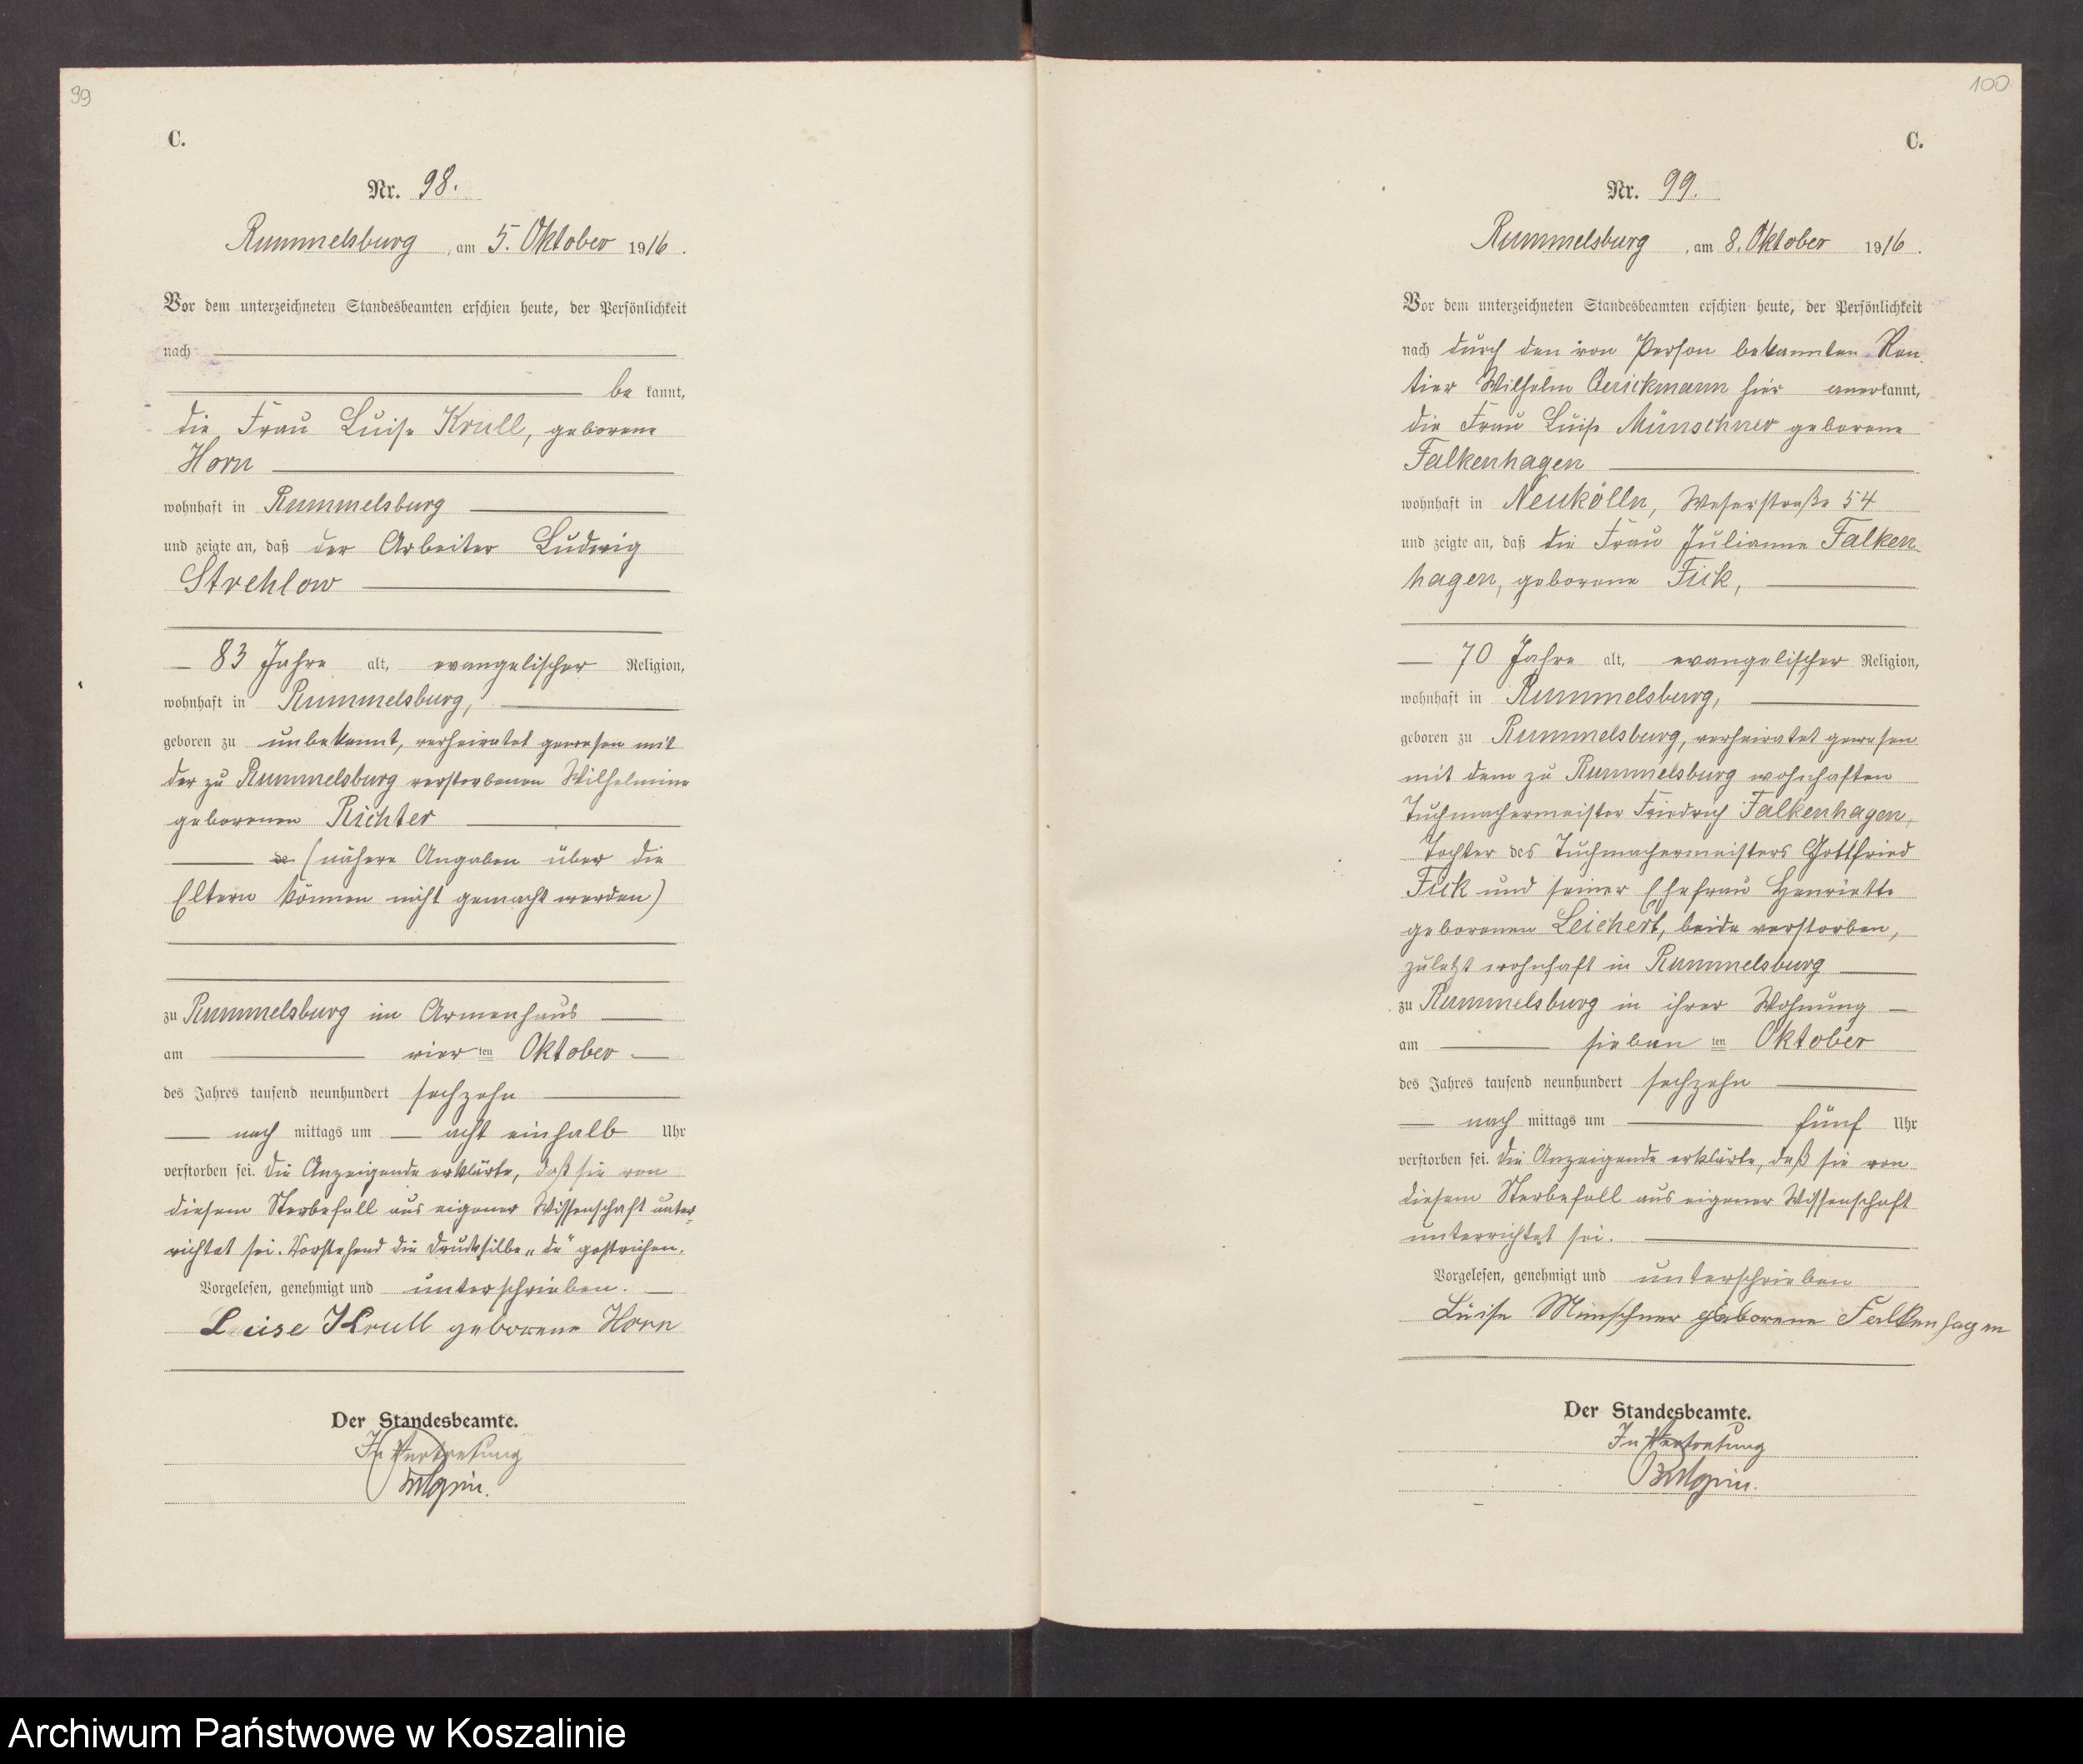 99
C.
Nr. 98.
Rummelsburg, am 5. Oktober 1916.
Vor dem unterzeichneten Standesbeamten erschien heute, der Persönlichkeit
nach
be kannt,
die Frau Luise Krull, geborene
Horn
wohnhaft in Rummelsburg
und zeigte an, daß der Arbeiter Ludwig
Strehlow
83 Jahre alt, evangelischer Religion,
wohnhaft in Rummelsburg,
geboren zu unbekannt, verheiratet gewesen mit
der zu Rummelsburg verstorbenen Wilhelmine
geborenen Richter
de (nähere Angaben über die
Eltern können nicht gemacht werden)
zu Rummelsburg im Armenhaus
am vier ten Oktober
des Jahres tausend neunhundert sechzehn
nach mittags um acht einhalb Uhr
verstorben sei. Die Anzeigende erklärte, daß sie von
diesem Sterbefall aus eigener Wissenschaft unter-
richtet sei. Vorstehend die Drucksilbe „de" gestrichen.
Vorgelesen, genehmigt und unterschrieben.
Luise Krull geborene Horn
Der Standesbeamte.
In Vertretung
100
C.
Nr. 99.
Rummelsburg, am 8. Oktober 1916.
Vor dem unterzeichneten Standesbeamten erschien heute, der Persönlichkeit
nach durch den von Person bekannten Ren-
tier Wilhelm hier anerkannt,
die Frau Luise Münschner geborene
Falkenhagen
wohnhaft in Neukölln, Weserstraße 54
und zeigte an, daß die Frau Julianne Falken-
hagen, geborene Fick,
70 Jahre alt, evangelischer Religion,
wohnhaft in Rummelsburg,
geboren zu Rummelsburg, verheiratet gewesen
mit dem zu Rummelsburg wohnhaften
Tuchmachermeister Friedrich Falkenhagen,
Tochter des Tuchmachermeisters Gottfried
Fick und seiner Ehefrau Henriette
geborenen Leichert, beide verstorben,
zuletzt wohnhaft in Rummelsburg
zu Rummelsburg in ihrer Wohnung
am sieben ten Oktober
des Jahres tausend neunhundert sechzehn
nach mittags um fünf Uhr
verstorben sei. Die Anzeigende erklärte, daß sie von
diesem Sterbefall aus eigener Wissenschaft
unterrichtet sei.
Vorgelesen, genehmigt und unterschrieben
Luise Münschner geborene Falkenhagen
Der Standesbeamte.
In Vertretung
Archiwum Państwowe w Koszalinie